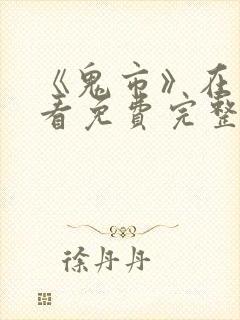 《鬼市》在
看免费完整
徐丹丹